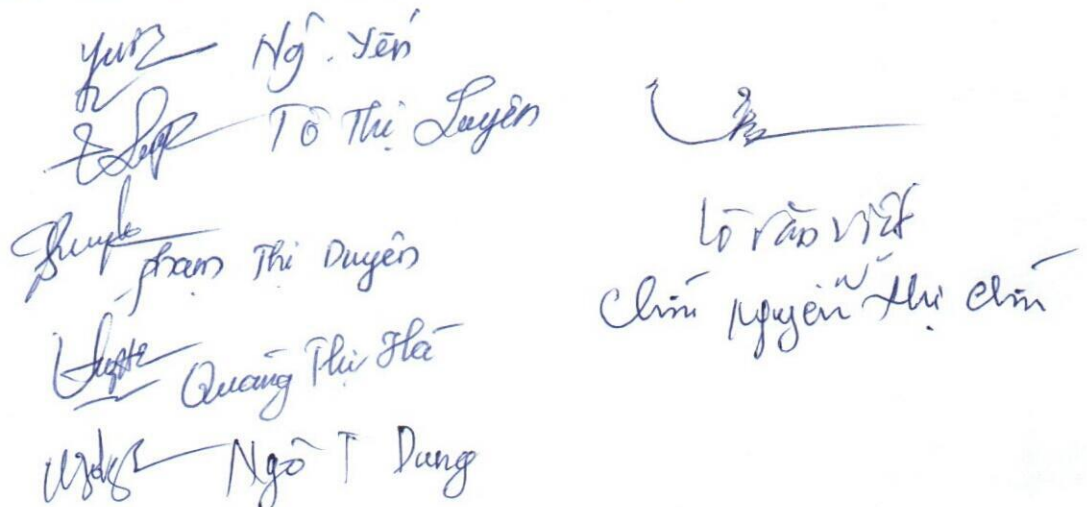 Ng. Yến
Tô Thị Luyên
Phạm Thị Duyên
Quàng Thị Hà
Ngô T Dung
Lò Văn Việt
Chín Nguyễn Thị Chín